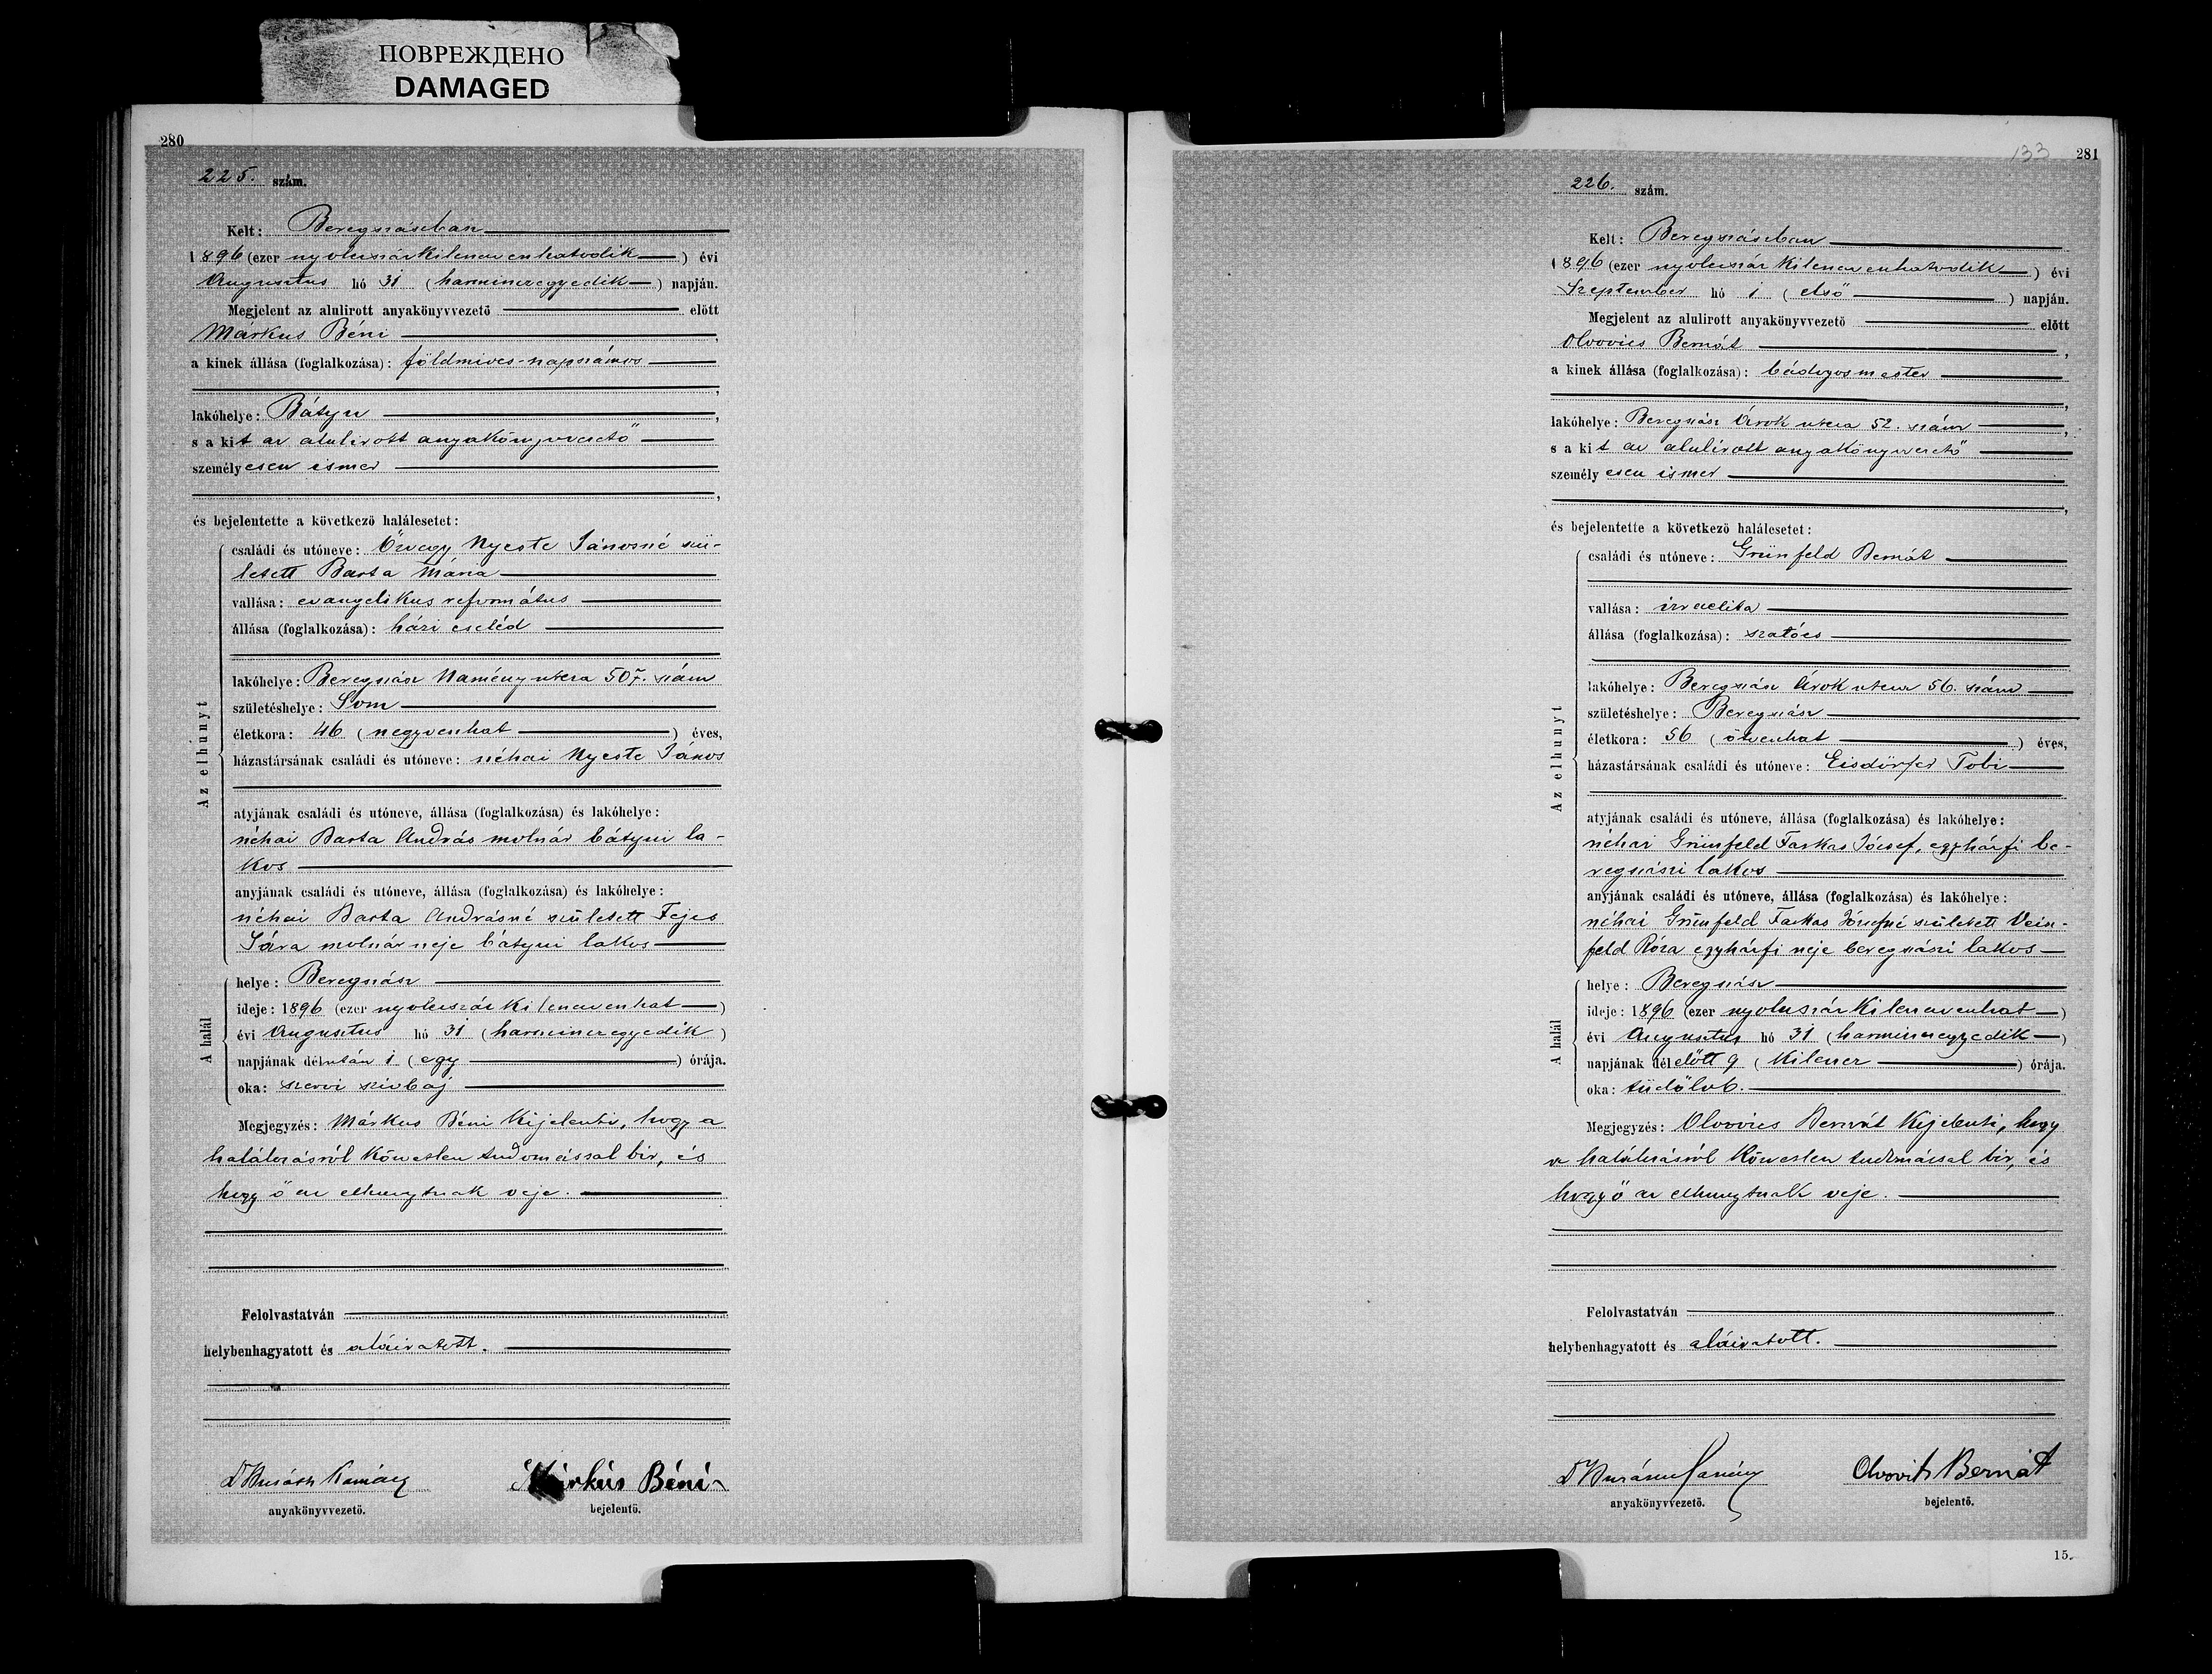 ПОВРЕЖДЕНО
DAMAGED
280
225. szám.
Kelt: Beregszászban
1896 (ezer nyolczszázkilenczvenhatodik) évi
Augusztus hó 31 (harminczegyedik) napján.
Megjelent az alulirott anyakönyvvezető előtt
Márkus Béni,
a kinek állása (foglalkozása): földmives-napszámos
,
lakóhelye: Bátyu,
s a kit az alulirott anyakönyvvezető
személyesen ismer
,
és bejelentette a következő halálesetet:
Az elhunyt
családi és utóneve: Özvegy Nyeste Jánosné szü-
letett Barta Mária
vallása: evangelikus református
állása (foglalkozása): házi cseléd
lakóhelye: Beregszász Naményutcza 507. szám
születéshelye: Som
életkora: 46 (negyvenhat) éves,
házastársának családi és utóneve: néhai Nyeste János
atyjának családi és utóneve, állása (foglalkozása) és lakóhelye:
néhai Barta András molnár bátyui la-
kos
anyjának családi és utóneve, állása (foglalkozása) és lakóhelye:
néhai Barta Andrásné született Fejes
Sára molnár neje bátyui lakos
A halál
helye: Beregszász
ideje: 1896 (ezer nyolczszázkilenczvenhat)
évi Augusztus hó 31 (harminczegyedik)
napjának délután 1 (egy) órája.
oka: szervi szivbaj
Megjegyzés: Márkus Béni kijelenti, hogy a
halálozásról közvetlen tudomással bir, és
hogy ő az elhunytnak veje.
Felolvastatván
helybenhagyatott és aláiratott.
anyakönyvvezető.
Márkus Béni
bejelentő.
133
281
226. szám.
Kelt: Beregszászban
1896 (ezer nyolczszázkilenczvenhatodik) évi
Szeptember hó 1 (első) napján.
Megjelent az alulirott anyakönyvvezető előtt
Olvovics Bernát,
a kinek állása (foglalkozása): bádogosmester
,
lakóhelye: Beregszász Árok utcza 52. szám,
s a kit az alulirott anyakönyvvezető
személyesen ismer
,
és bejelentette a következő halálesetet:
Az elhunyt
családi és utóneve: Grünfeld Bernát
vallása: izraelita
állása (foglalkozása): szatócs
lakóhelye: Beregszász Árok utcza 56. szám
születéshelye: Beregszász
életkora: 56 (ötvenhat) éves,
házastársának családi és utóneve: Eisdörfer Tobi
atyjának családi és utóneve, állása (foglalkozása) és lakóhelye:
néhai Grünfeld Farkas József, egyházfi be-
regszászi lakos
anyjának családi és utóneve, állása (foglalkozása) és lakóhelye:
néhai Grünfeld Farkas Józsefné született Vein-
feld Róza egyházfi neje beregszászi lakos
A halál
helye: Beregszász
ideje: 1896 (ezer nyolczszázkilenczvenhat)
évi Augusztus hó 31 (harminczegyedik)
napjának délelőtt 9 (kilencz) órája.
oka: tüdőlob.
Megjegyzés: Olvovics Bernát kijelenti, hogy
a halálozásról közvetlen tudomással bir, és
hogy ő az elhunytnak veje.
Felolvastatván
helybenhagyatott és aláiratott.
anyakönyvvezető.
Olvovits Bernát
bejelentő.
15.